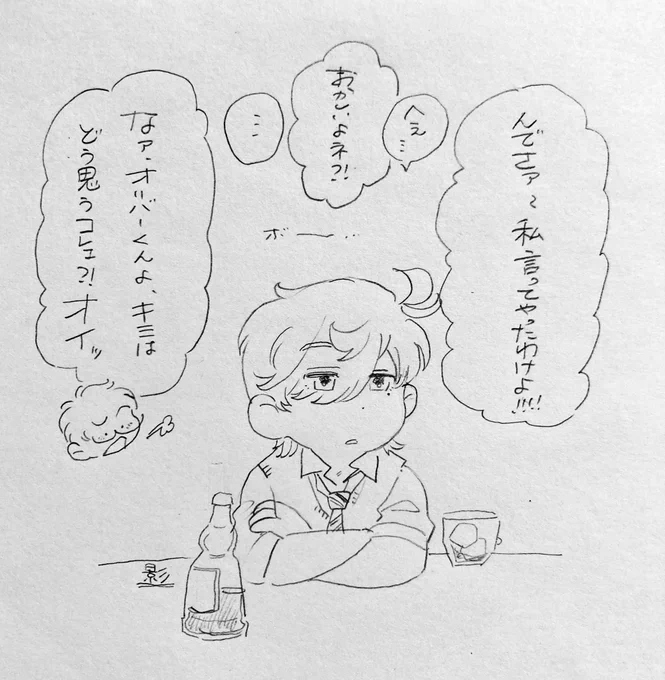 んでさァ〜 私言ってやったわけよ!!!!
へぇ…
おかしいよネ?!
…
ボー…
なァ、オリバーくんよ、キミは
どう思うコレェ?!オイッ
影